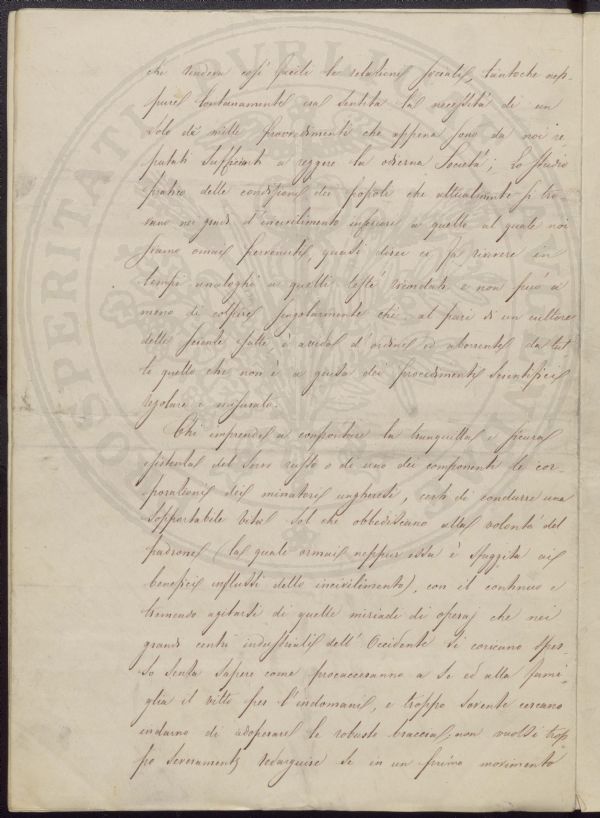 che rendeva così facili le relazioni sociali, tantoche nep-
pure lontanamente era sentita la necessità di un
solo dà mille provvedimenti che appena sono da noi re
putati sufficienti a reggere la odierna Società; Lo studio
pratico delle condizioni dei popoli che attualmente si tro-
vano nei gradi d'incivilimento inferiore a quello al quale noi
siamo omai pervenuti, quasi direi ci fà rivivere in
tempi analoghi a quelli testé ricordati e non può a
meno di colpire singolarmente chi al pari di un cultore
delle scienze è avido d'ordine ed aborrente da tut
to quello che non è a guisa dei procedimenti scientifici
regolare e misurato.
Chi imprende a confrontare la tranquilla e sicura
esistenza del servo russo o di uno dei componenti le cor-
porazioni dei minatori ungheresi, certi di condurre una
sopportabile vita sol che obbediscano alla volontà del
padrone (la quale ormai neppur essa è sfuggita ai
benefici influssi dello incivilimento), con il continuo e
tremendo agitarsi di quelle miriadi di operaj che nei
grandi centri industriali dell'Occidente si coricano spes-
so senza sapere come procacceranno a se ed alla fami-
glia il vitto per l'indomani, e troppo sovente cercano
indarno di adoperare le robuste braccia, non vuolsi trop
po severamente redarguire se in un primo movimento
PROSPERITATI PVBLICAE